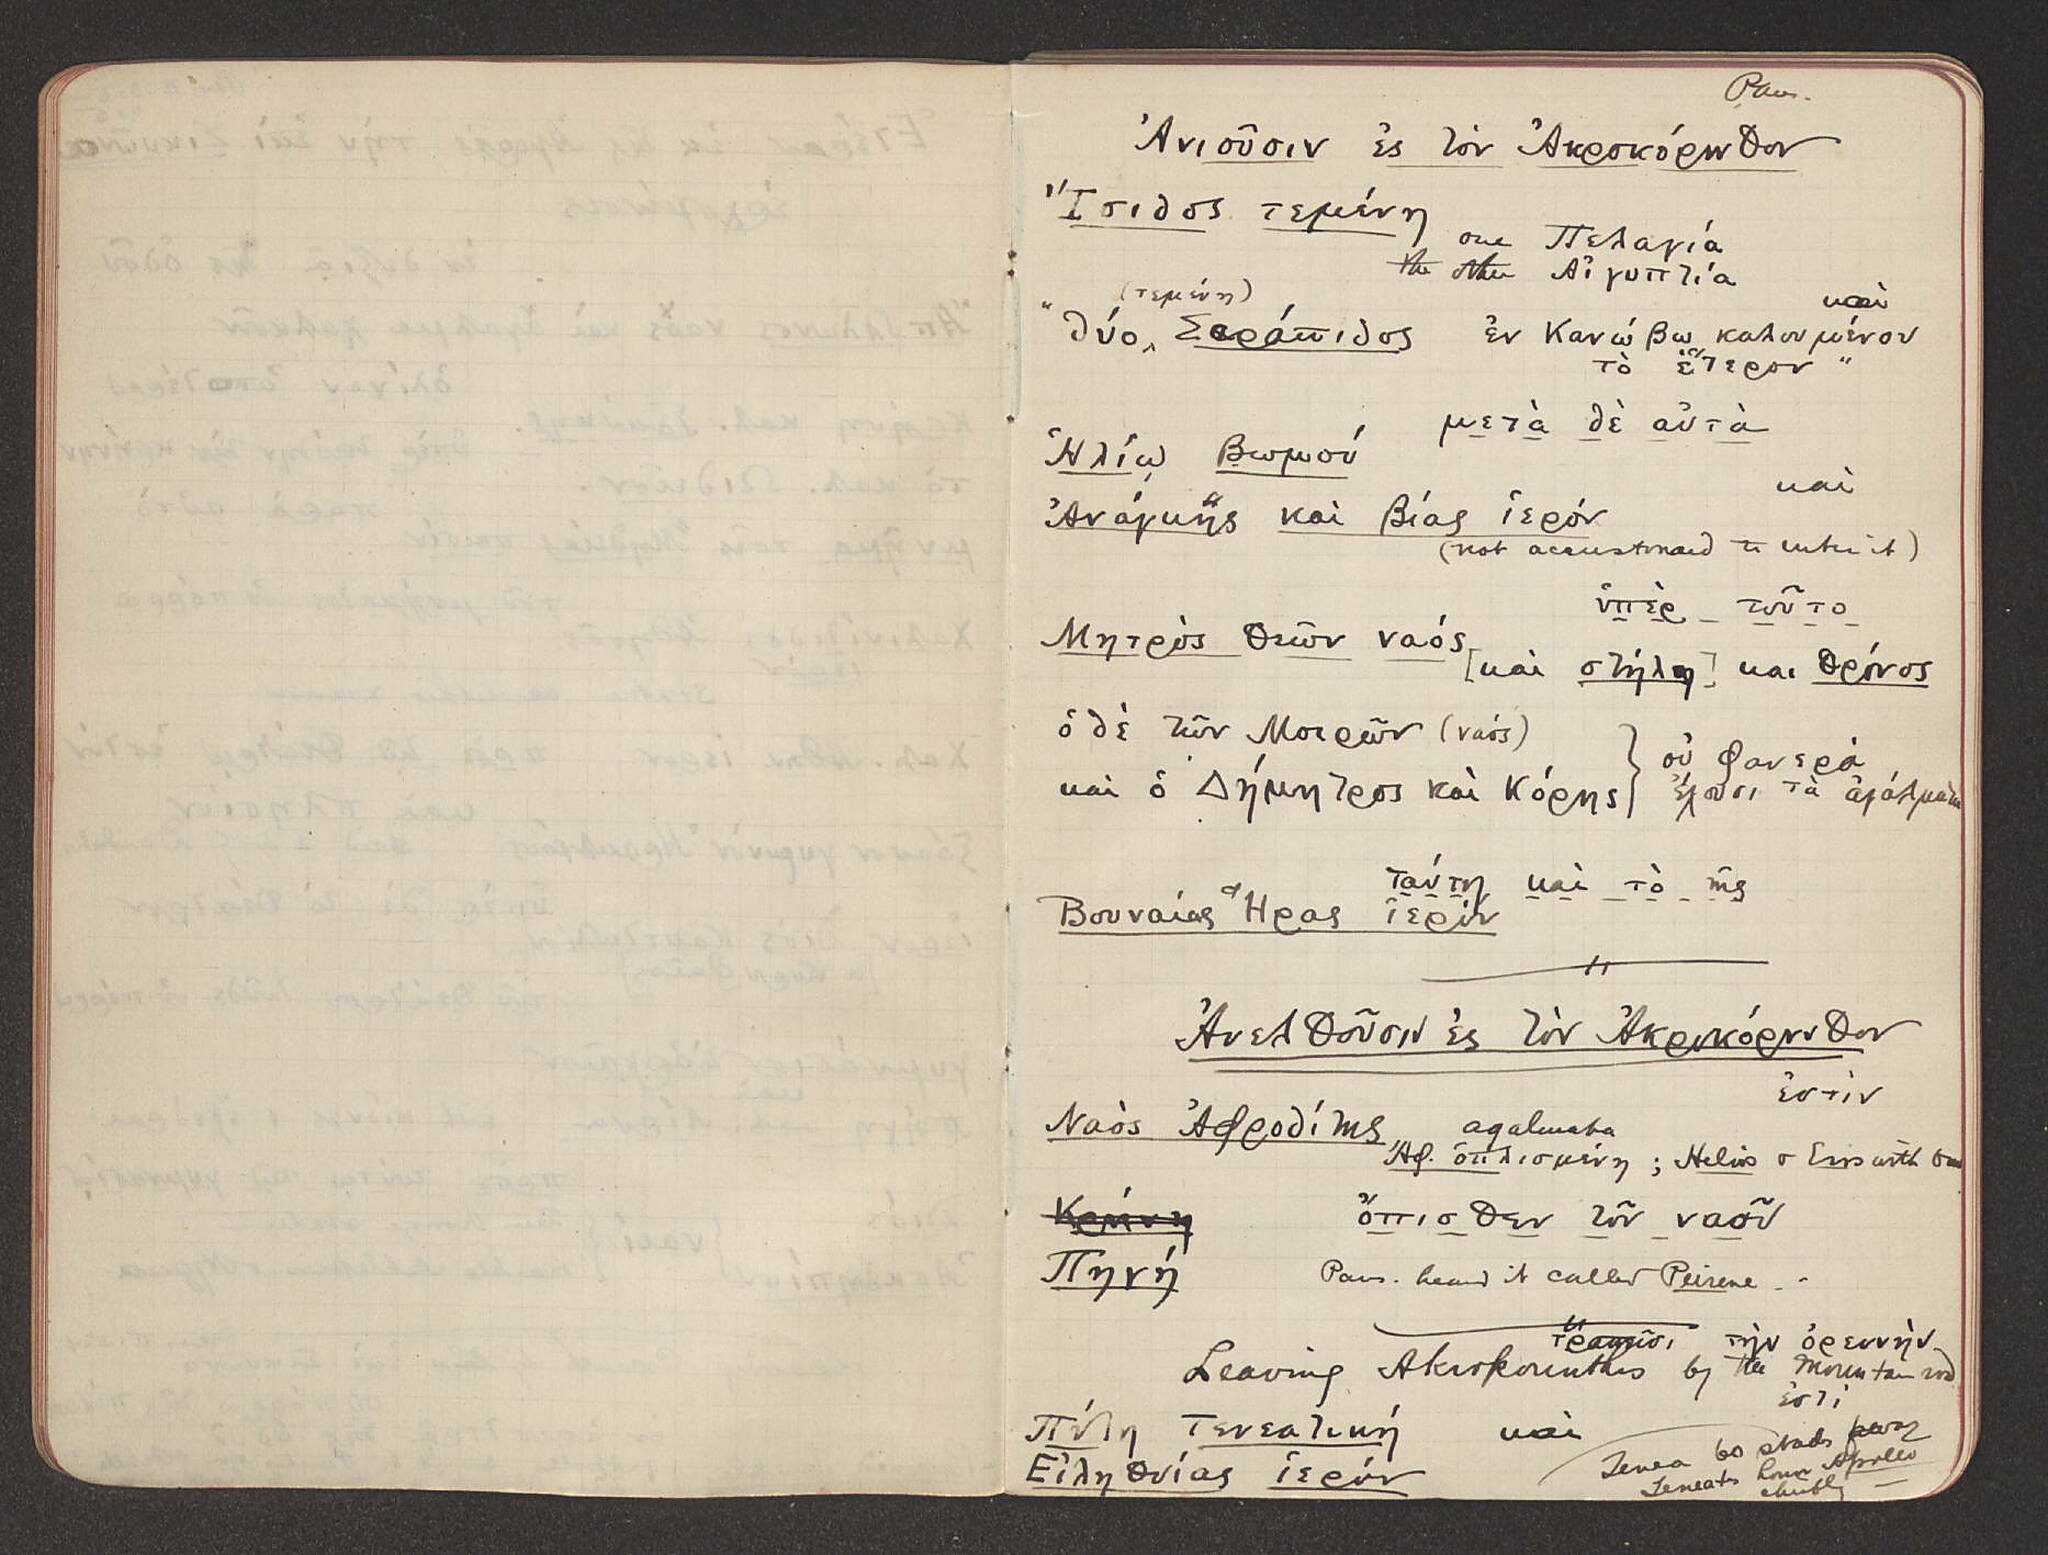 Paus.
Ἀνιοῦσιν ἐς τὸν Ἀκροκόρινθον
"Ἴσιδος τεμένη
one Πελαγία
the other Αἰγυπτία
(τεμένη) καὶ
"δύο Σαράπιδος ἐν Κανώβω καλουμένου
τὸ ἕτερον"
μετὰ δὲ αὐτὰ
Ἡλίῳ βωμοί
καὶ
Ἀνάγκης καὶ Βίας ἱερόν
(not accustomed to enter it)
ὑπὲρ τοῦτο
Μητρὸς θεῶν ναός
[καὶ στήλη] και θρόνος
ὁ δὲ τῶν Μοιρῶν (ναός)
οὐ φανερὰ
καὶ ὁ Δήμητρος καὶ Κόρης ἔχουσι τὰ ἀγάλματα
ταύτῃ καὶ τὸ τῆς
Βουναίας Ἥρας ἱερόν
Ἀνελθοῦσιν ἐς τὸν Ἀκροκόρινθον
ἐστὶν
Ναὸς Ἀφροδίτης agalmata
Αφ. ὁπλισμένη ; Helios + Eros with bow
Κρήνη ὄπισθεν τοῦ ναοῦ
Πηγή Paus. heard it called Peirene -
τραπεῖσι τὴν ὀρεινὴν
Leaving Akrokorinthos by the mountain road
ἐστὶ
Πύλη Τενεατική καὶ
Εἰληθυίας ἱερόν
Tenea 60 stads away
Teneats honor Apollo
chiefly